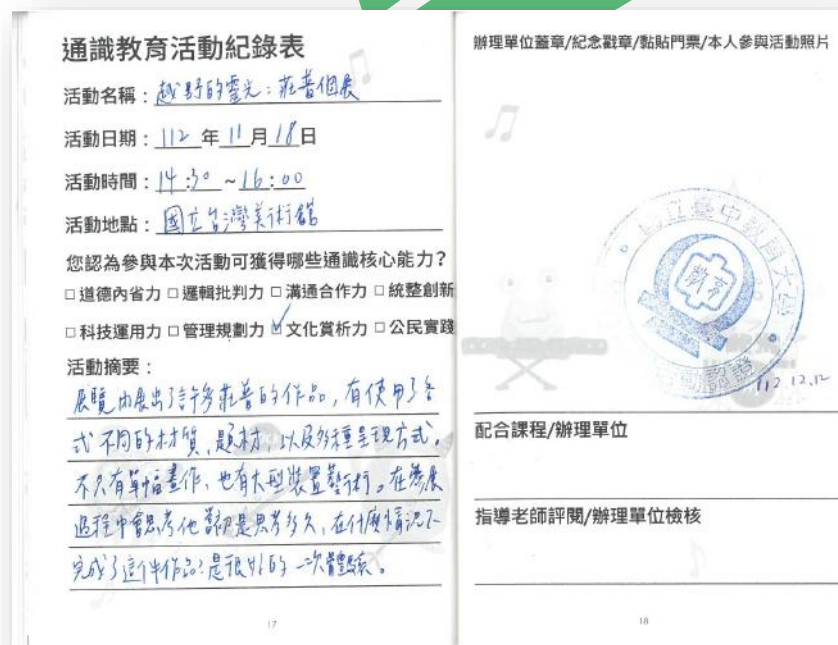 通識教育活動紀錄表
活動名稱：越野的靈光：莊普個展
活動日期：112年11月18日
活動時間：14:30~16:00
活動地點：國立台灣美術館
您認為參與本次活動可獲得哪些通識核心能力？
□道德內省力 □邏輯批判力 □溝通合作力 □統整創新
□科技運用力 □管理規劃力 ☑文化賞析力 □公民實踐
活動摘要：
展覽內展出了許多莊普的作品，有使用了各
式不同的材質、題材，以及多種呈現方式。
不只有單幅畫作，也有大型裝置藝術。在觀展
過程中會思考他當初是思考多久，在什麼情況下
完成了這件作品？是很好的一次體驗。
17
辦理單位蓋章/紀念戳章/黏貼門票/本人參與活動照片
國立臺中教育大學
教育
活動認證
112.12.12
配合課程/辦理單位
指導老師評閱/辦理單位檢核
18